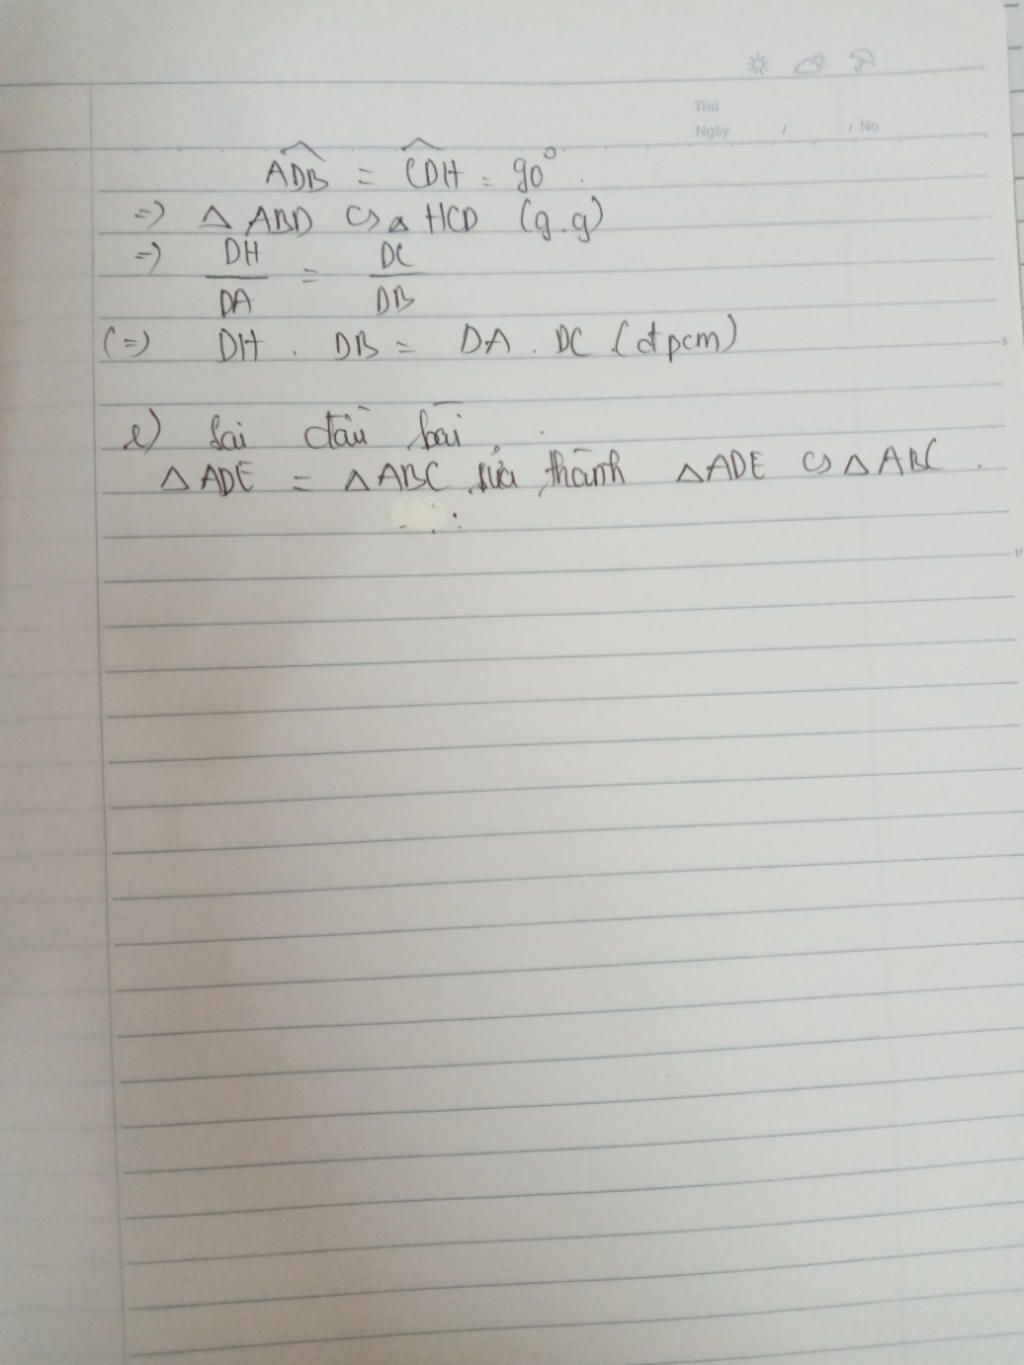 Thứ
Ngày / / No
ADB = CDH = 90°.
=) △ ABD ∽ △ HCD (g.g)
=) DH/DA = DC/DB
(=) DH . DB = DA . DC (đpcm)
e) Sai đầu bài.
△ADE = △ABC sửa thành △ADE ∽ △ABC.